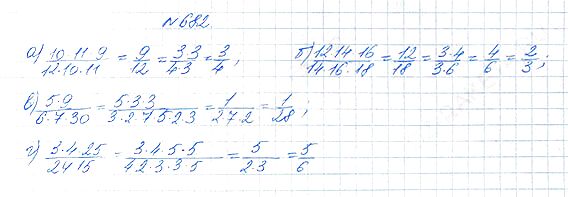 №682.
а) 10·11·9/12·10·11 = 9/12 = 3·3/4·3 = 3/4; б) 12·14·16/14·16·18 = 12/18 = 3·4/3·6 = 4/6 = 2/3;
в) 5·9/6·7·30 = 5·3·3/3·2·7·5·2·3 = 1/2·7·2 = 1/28;
г) 3·4·25/24·15 = 3·4·5·5/4·2·3·3·5 = 5/2·3 = 5/6